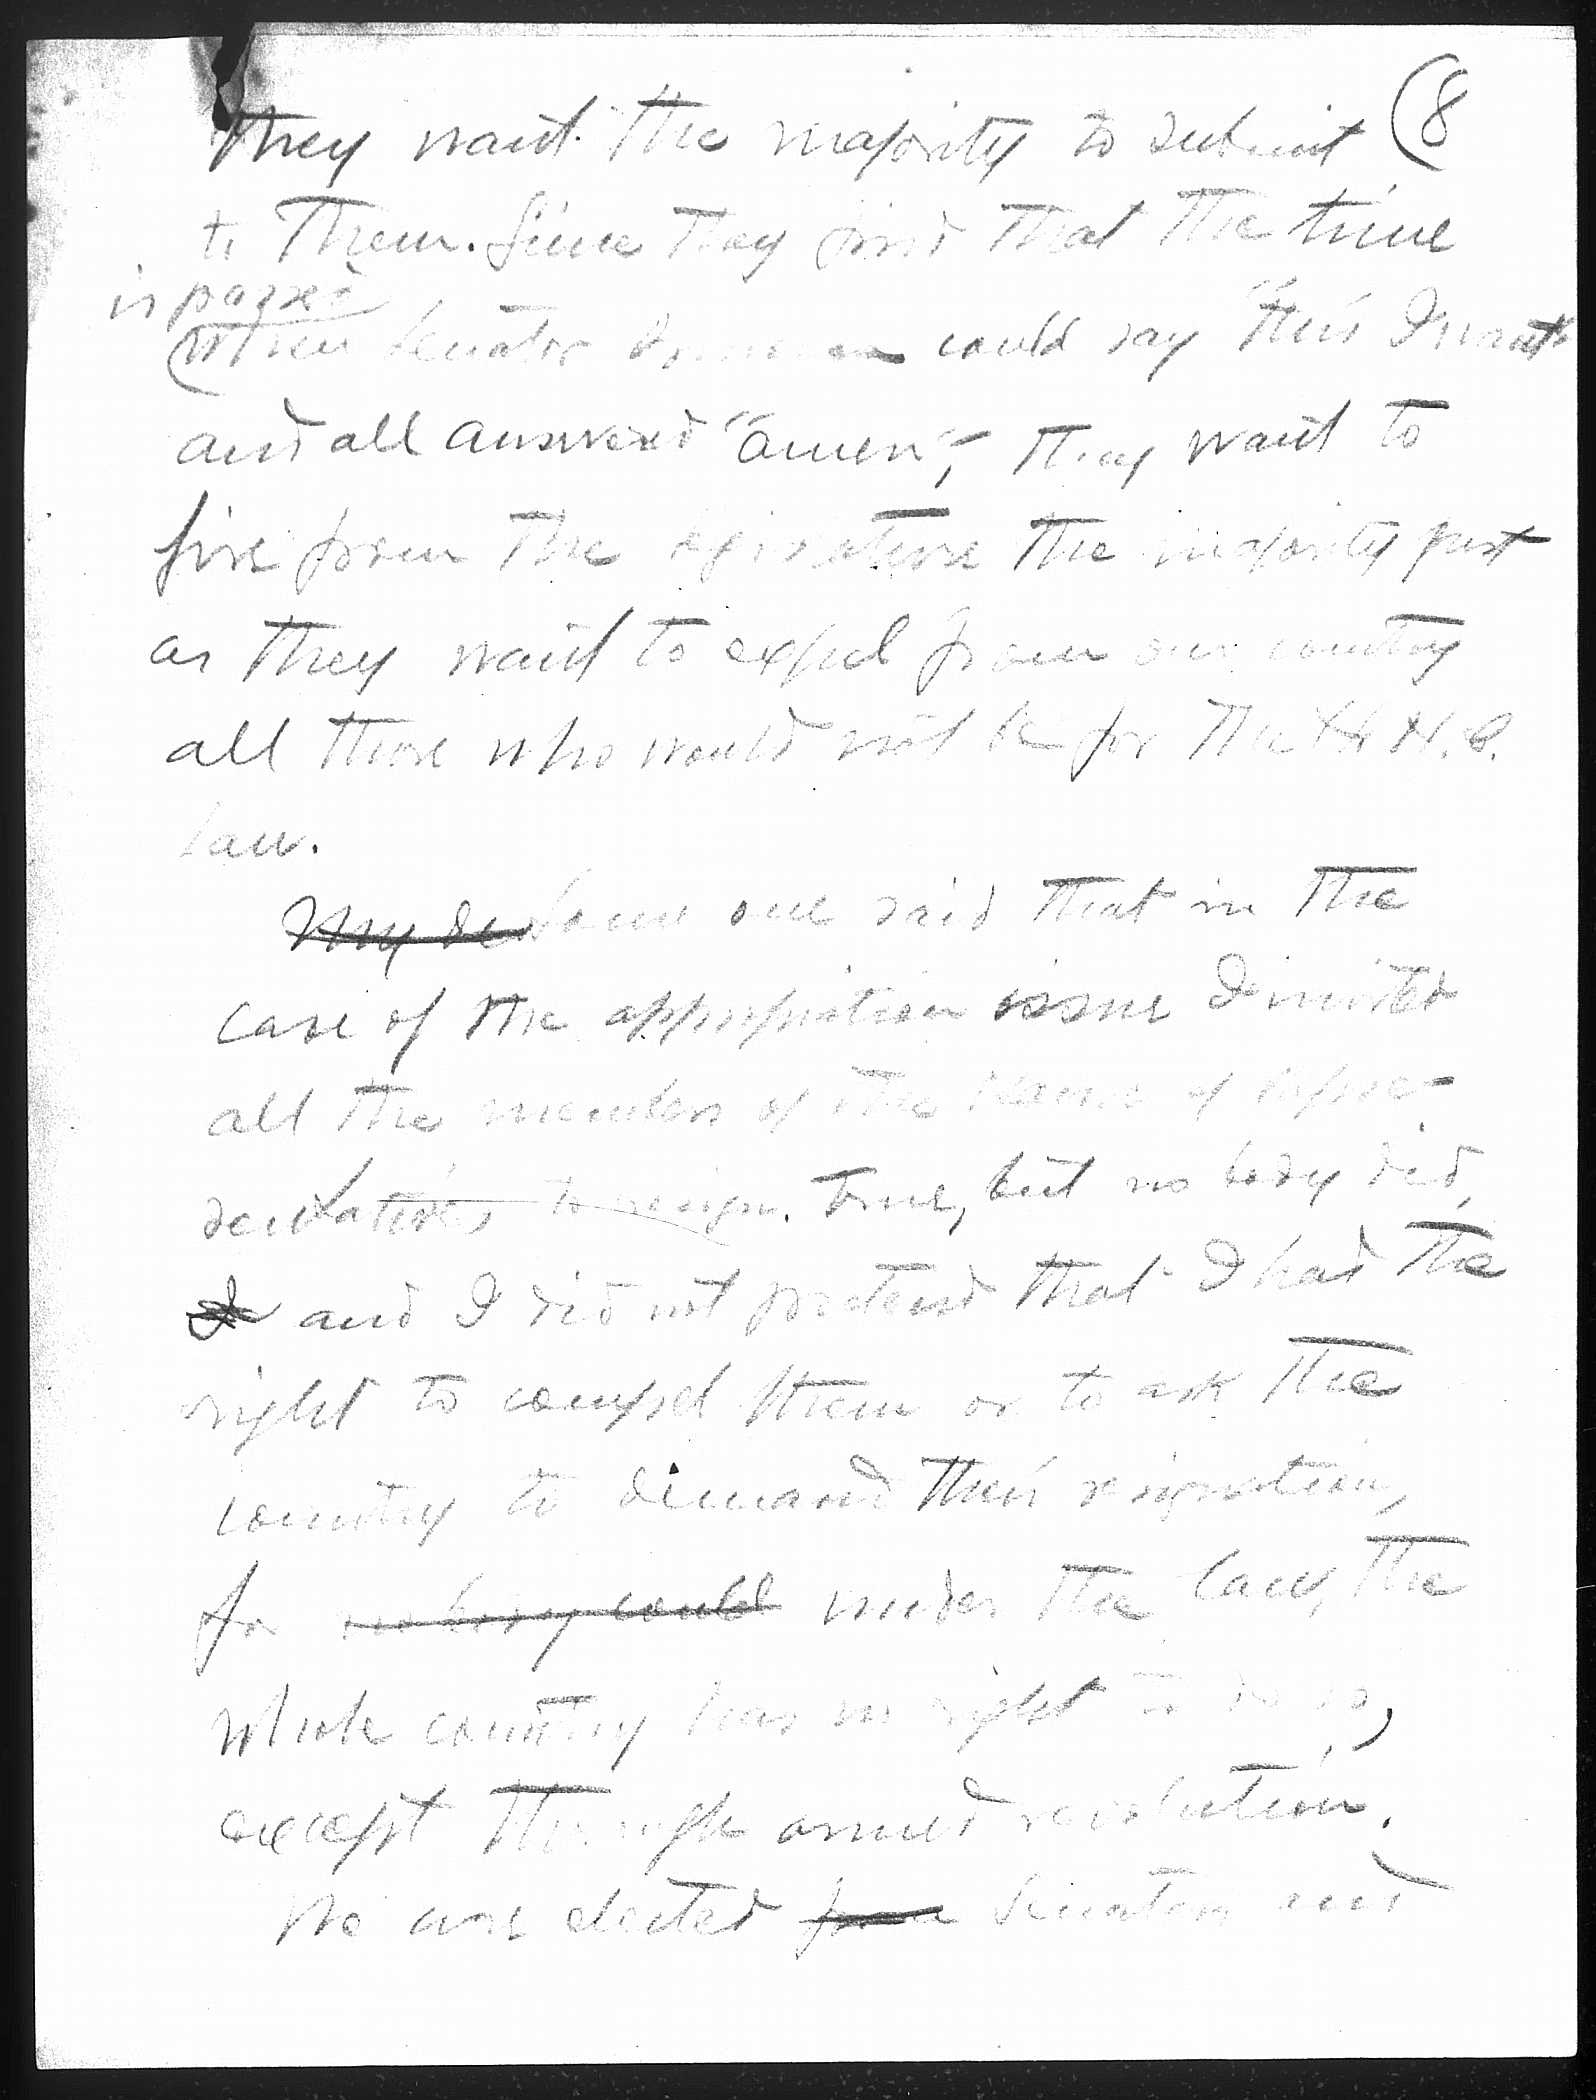 (8
They want the majority to submit
to them. Since they find that the time
is passed
when Senator could say "this I want"
and all answered "amen", they want to
fire from the legislature the majority just
as they want to expel from our country
all those who would not be for the H. H. C.
law.
My de Some one said that in the
case of the appropriation issue I invited
all the members of the House of Repre-
sentatives to resign. True, but no body did,
I and I did not pretend that I had the
right to compel them or to ask the
country to demand their resignation,
for no body could under the law, the
whole country has no right to do so,
except through armed revolution.
We are elected from Senators and